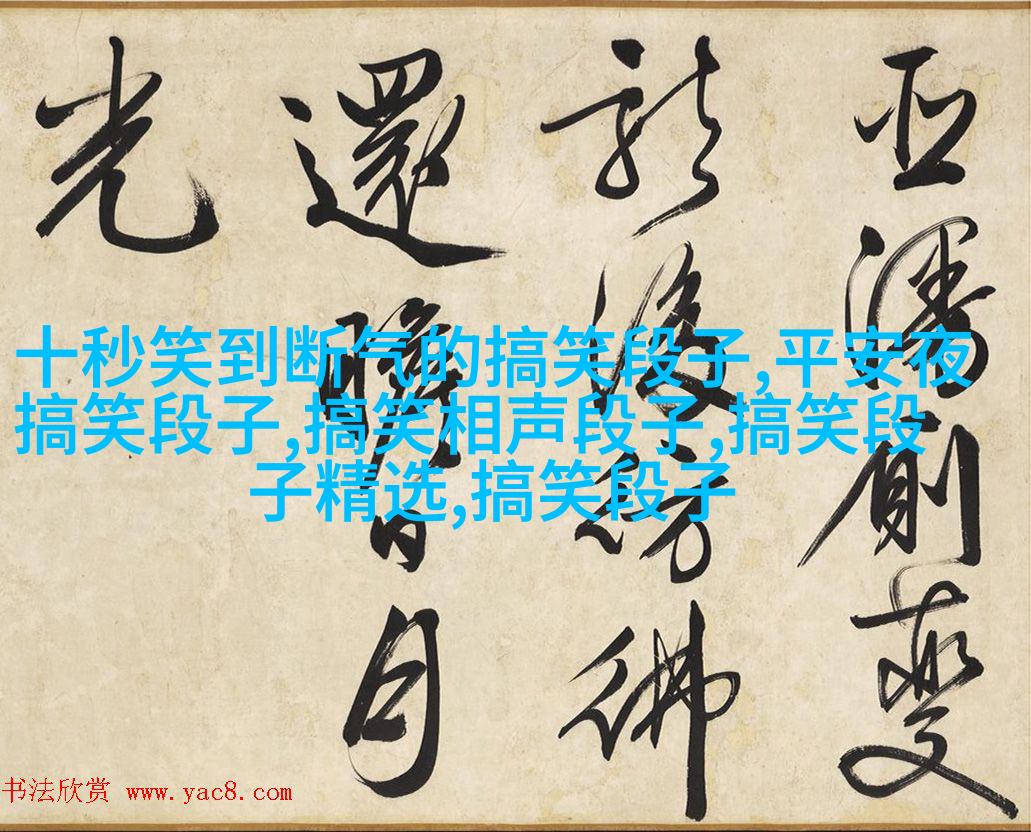 十秒笑到断气的搞笑段子,平安夜
搞笑段子,搞笑相声段子,搞笑段
子精选,搞笑段子
潘變
後彷彿
還瞻日月
光
书法欣赏 www.yac8.com